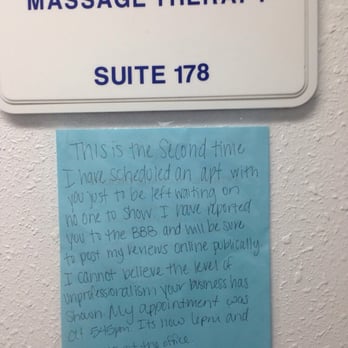 MASSAGE THERAPY
SUITE 178
This is the second time
I have scheduled an apt with
you just to be left waiting on
no one to show. I have reported
you to the BBB and will be sure
to post my reviews online publically
I cannot believe the level of
unprofessionalism your business has
shown My appointment was
at 545pm Its now 6pm and
at the office.